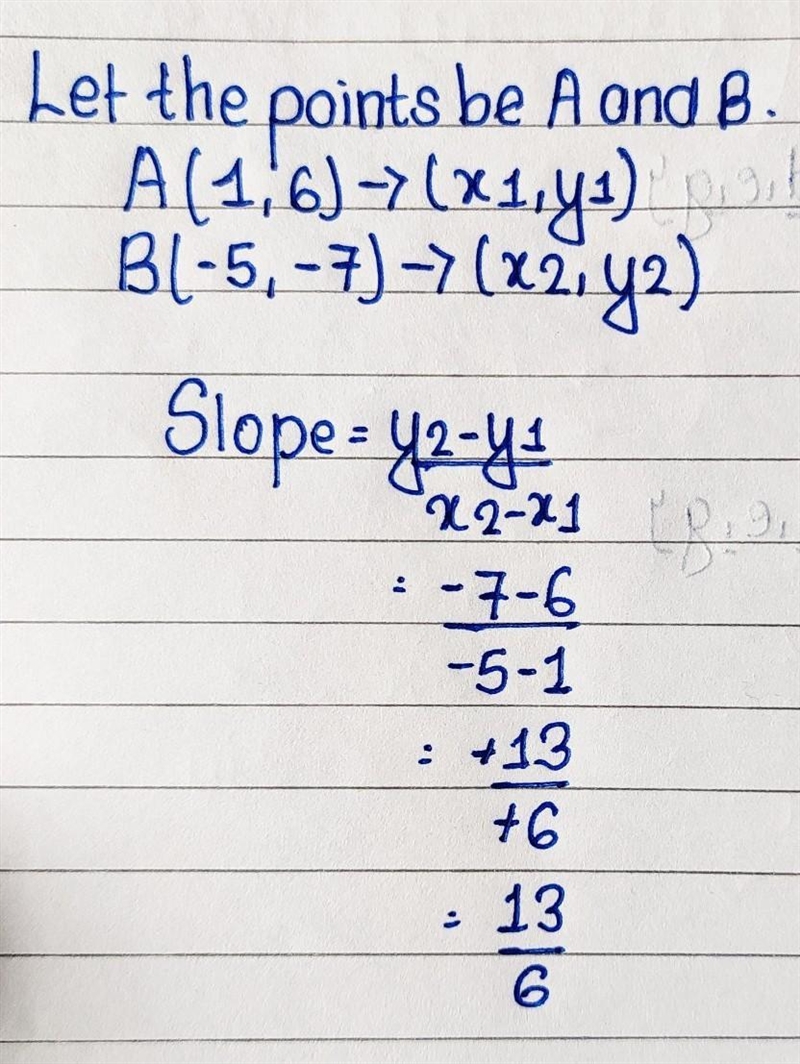 Let the points be A and B.
A(1, 6) → (x1, y1)
B(-5, -7) → (x2, y2)
Slope = y2-y1
x2-x1
= -7-6
-5-1
= +13
+6
= 13
6